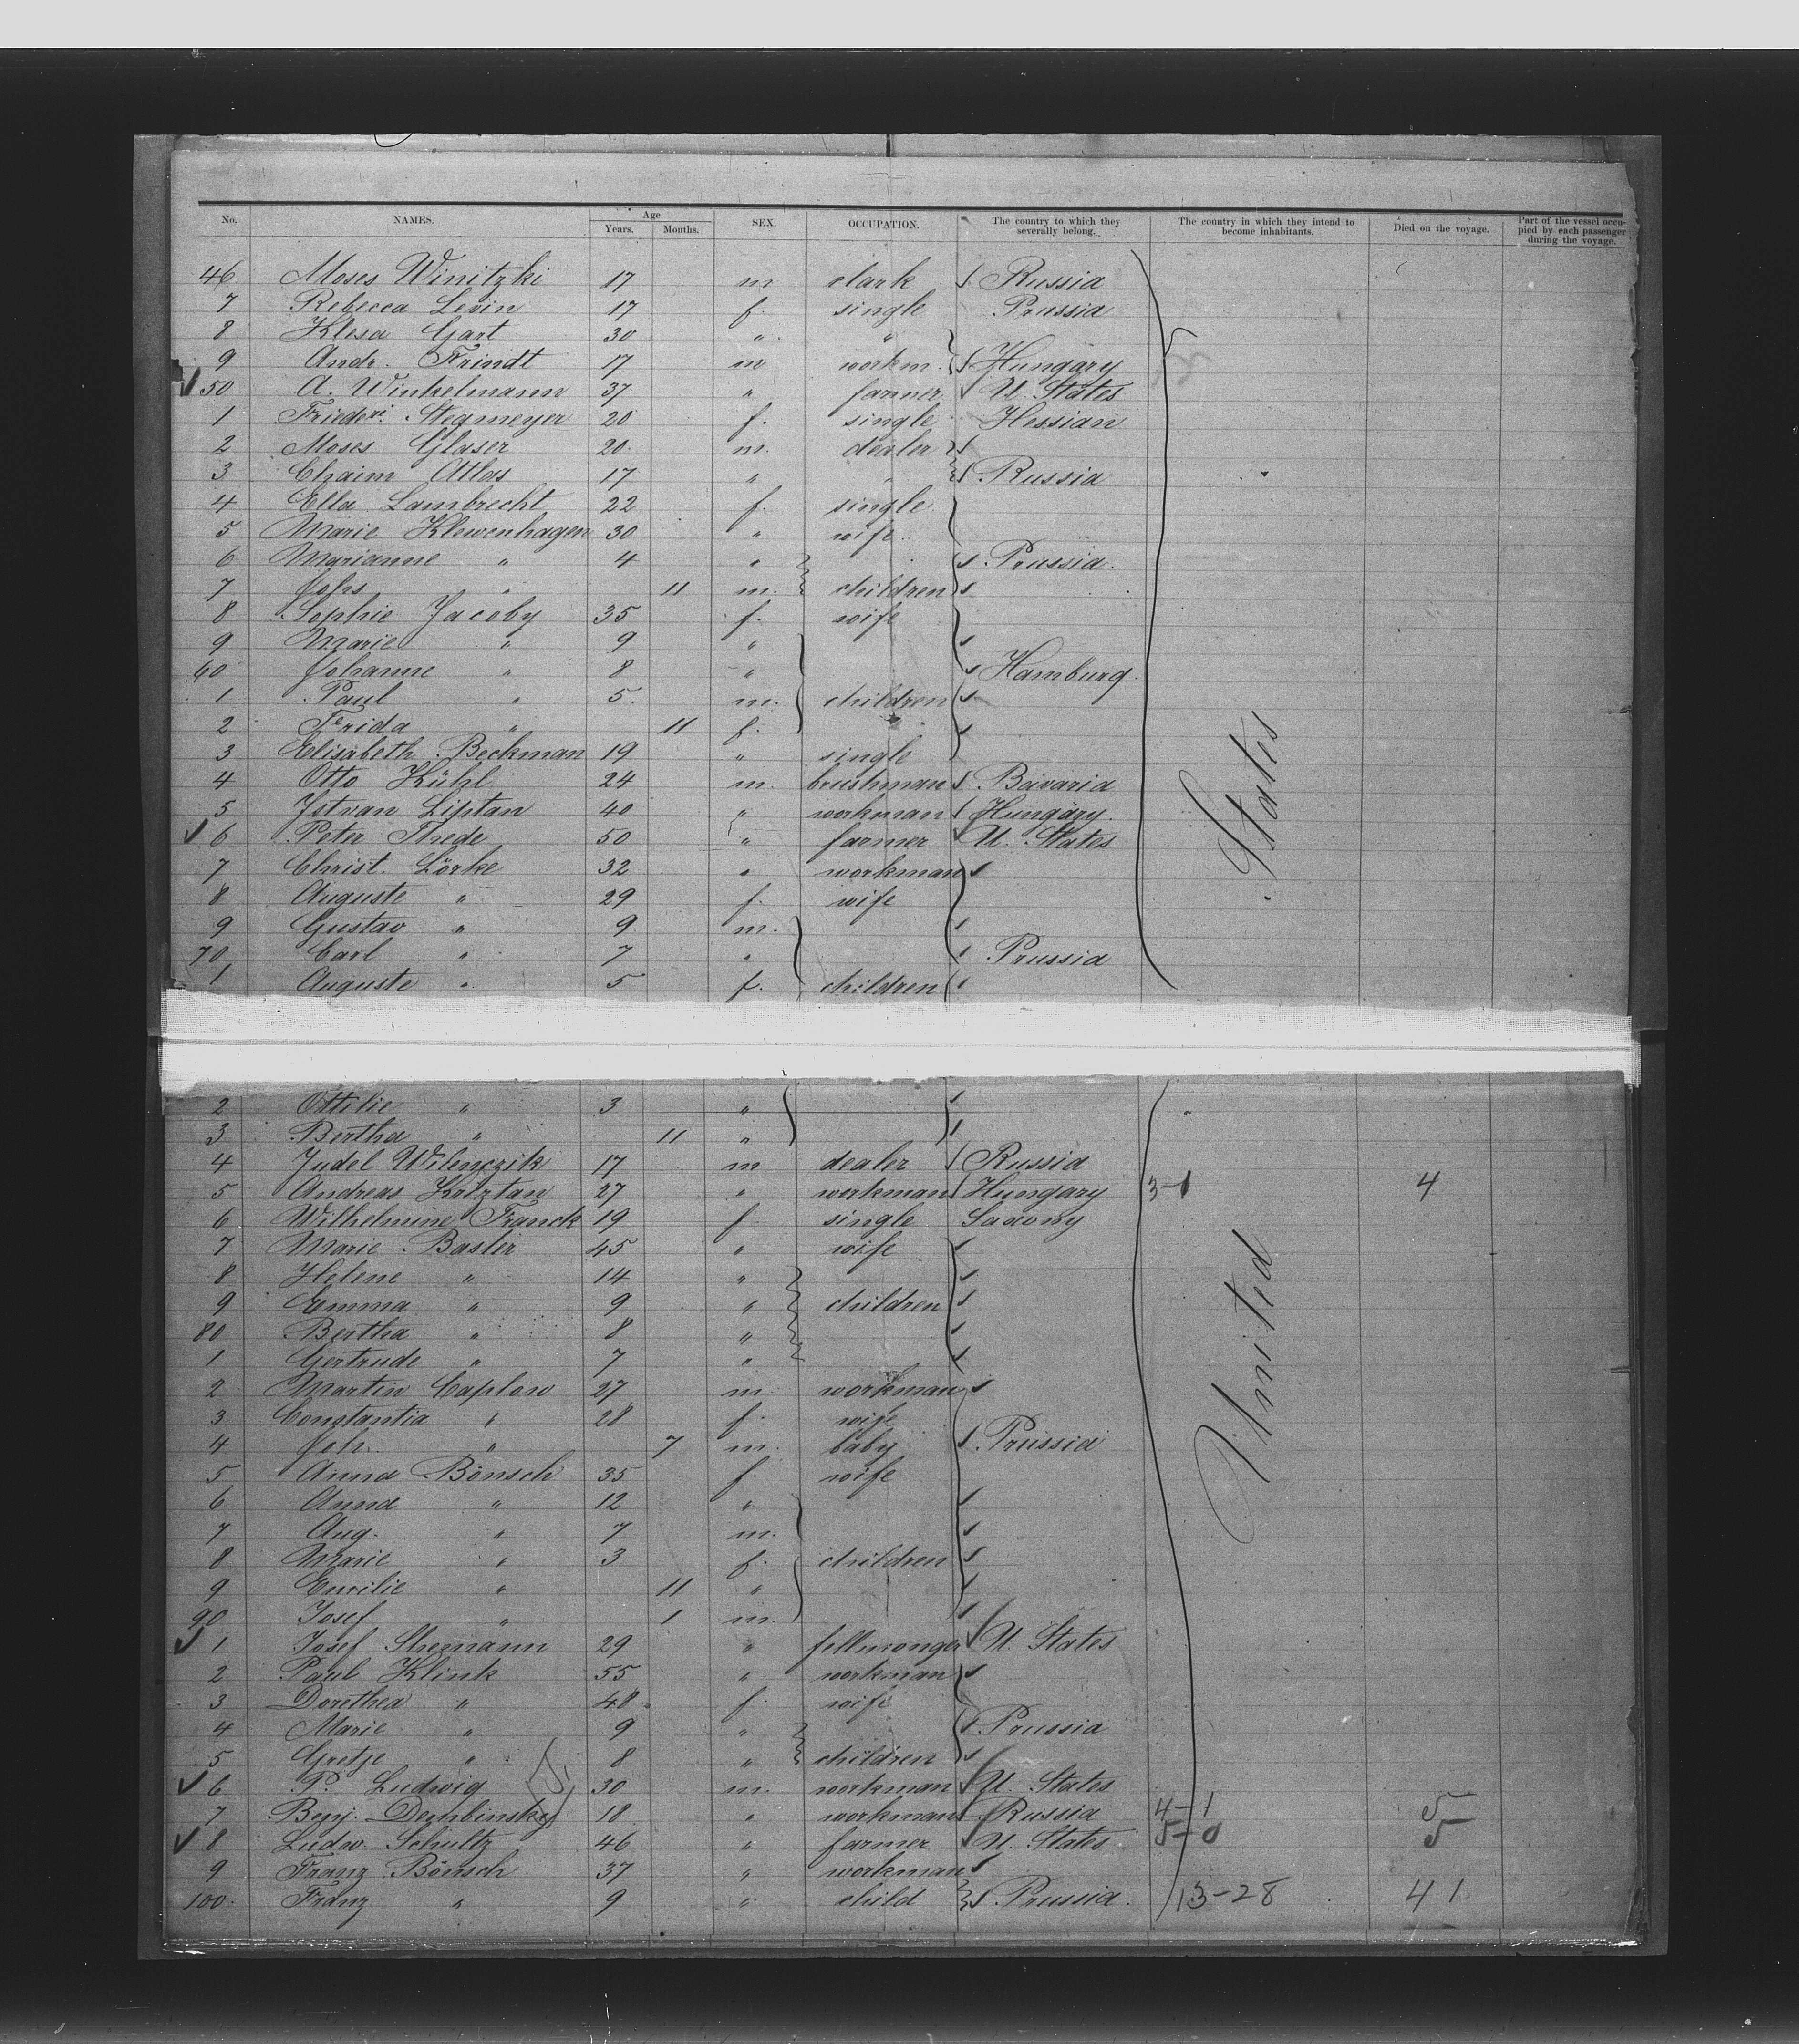 No. NAMES. Age Years. Months. SEX. OCCUPATION. The country to which they severally belong. The country in which they intend to become inhabitants. Died on the voyage. Part of the vessel occupied by each passenger during the voyage.
46 Moses Winitzki 17 m clark Russia
7 Rebecca Levin 17 f. single Prussia
8 Klesa Gart 30 " "
9 Andr. Frindt 17 m workm. Hungary
50 A. Winkelmann 37 " farmer U. States
1 Friederi. Stegmeyer 20 f. single Hessian
2 Moses Glaser 20 m. dealer
3 Chaim Atlas 17 " " Russia
4 Ella Lambrecht 22 f. single
5 Marie Klewenhagen 30 " wife
6 Marianne " 4 " Prussia.
7 Johs " 11 m. children
8 Sophie Jacoby 35 f. wife
9 Marie " 9 "
60 Johanne " 8 " Hamburg.
1 Paul " 5 m. children
2 Frida " 11 f.
3 Elisabeth Beckman 19 " single
4 Otto Kühl 24 m. brushman Bavaria
5 Jstvan Liptan 40 " workman Hungary.
6 Peter Thede 50 " farmer U. States
7 Christ. Lörke 32 " workman
8 Auguste " 29 f. wife
9 Gustav " 9 m.
70 Carl " 7 " Prussia
1 Auguste " 5 f. children
States
2 Ottilie " 3 "
3 Bertha " 11 "
4 Judel Wilenczik 17 m dealer Russia
5 Andreas Kriztan 27 " workman Hungary 3-1 4
6 Wilhelmine Franck 19 f single Saxony
7 Marie Basler 45 " wife
8 Helene " 14 "
9 Emma " 9 " children
80 Bertha " 8 "
1 Gertrude " 7 "
2 Martin Caplow 27 m. workman
3 Constantia " 28 f. wife
4 Joh. " 7 m. baby Prussia
5 Anna Bönsch 35 f. wife
6 Anna " 12 "
7 Aug. " 7 m.
8 Marie " 3 f. children
9 Emilie " 11 "
90 Josef " 1 m.
1 Josef Shemann 29 " fellmonger U. States
2 Paul Klink 55 " workman
3 Dorethea " 48 f. wife
4 Marie " 9 " Prussia
5 Gretje " 8 " children
6 P. Ludwig 30 m. workman U. States
7 Benj. Dembinsky 18 " workman Russia 4-1 5
8 Ludw. Schultz 46 " farmer U. States 5-0 5
9 Franz Bönsch 37 " workman
100 Franz " 9 " child Prussia. 13-28 41
United